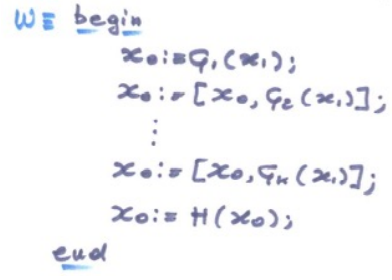 W ≡ begin
x₀:=G₁(x₁);
x₀:=[x₀,G₂(x₁)];
⋮
x₀:=[x₀,Gₖ(x₁)];
x₀:= H(x₀);
end